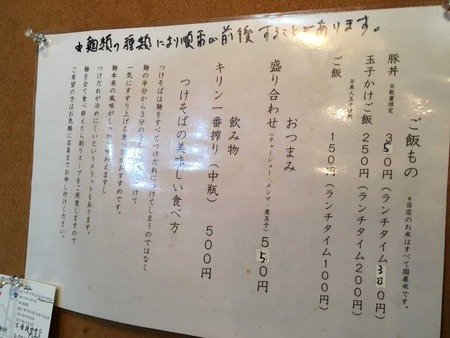 ※麺類の種類により順番が前後することがあります。
ご飯もの ※当店のお米はすべて国産米です。
豚丼 ※数量限定 350円(ランチタイム300円)
玉子かけご飯 250円(ランチタイム200円)
ご飯 150円(ランチタイム100円)
おつまみ
盛り合わせ(チャーシュー・メンマ・煮玉子) 550円
飲み物
キリン一番搾り(中瓶) 500円
つけそばの美味しい食べ方
つけそばは麺をすべてつけだれにつけてしまうのではなく
麺の半分から3分の
一気にすすり上げる食べ おすすめです。
麺本来の風味がしっか わえますし
つけだれが冷めにくいというメリットもあります。
麺を全て食べ終えたら割りスープをご用意しますので
ご希望の方はお気軽に店員までお申し付けください。